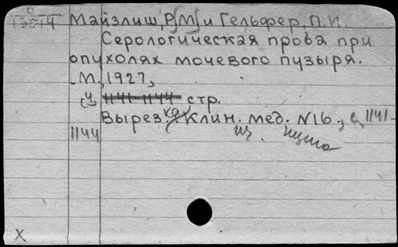 Майзлиш, Р. М. и Гельфер, П. И.
Серологическая проба при
опухолях мочевого пузыря.
М., 1927,
1141-1144 стр.
Вырез. Клин. мед. N16., с 1141-
1144
X